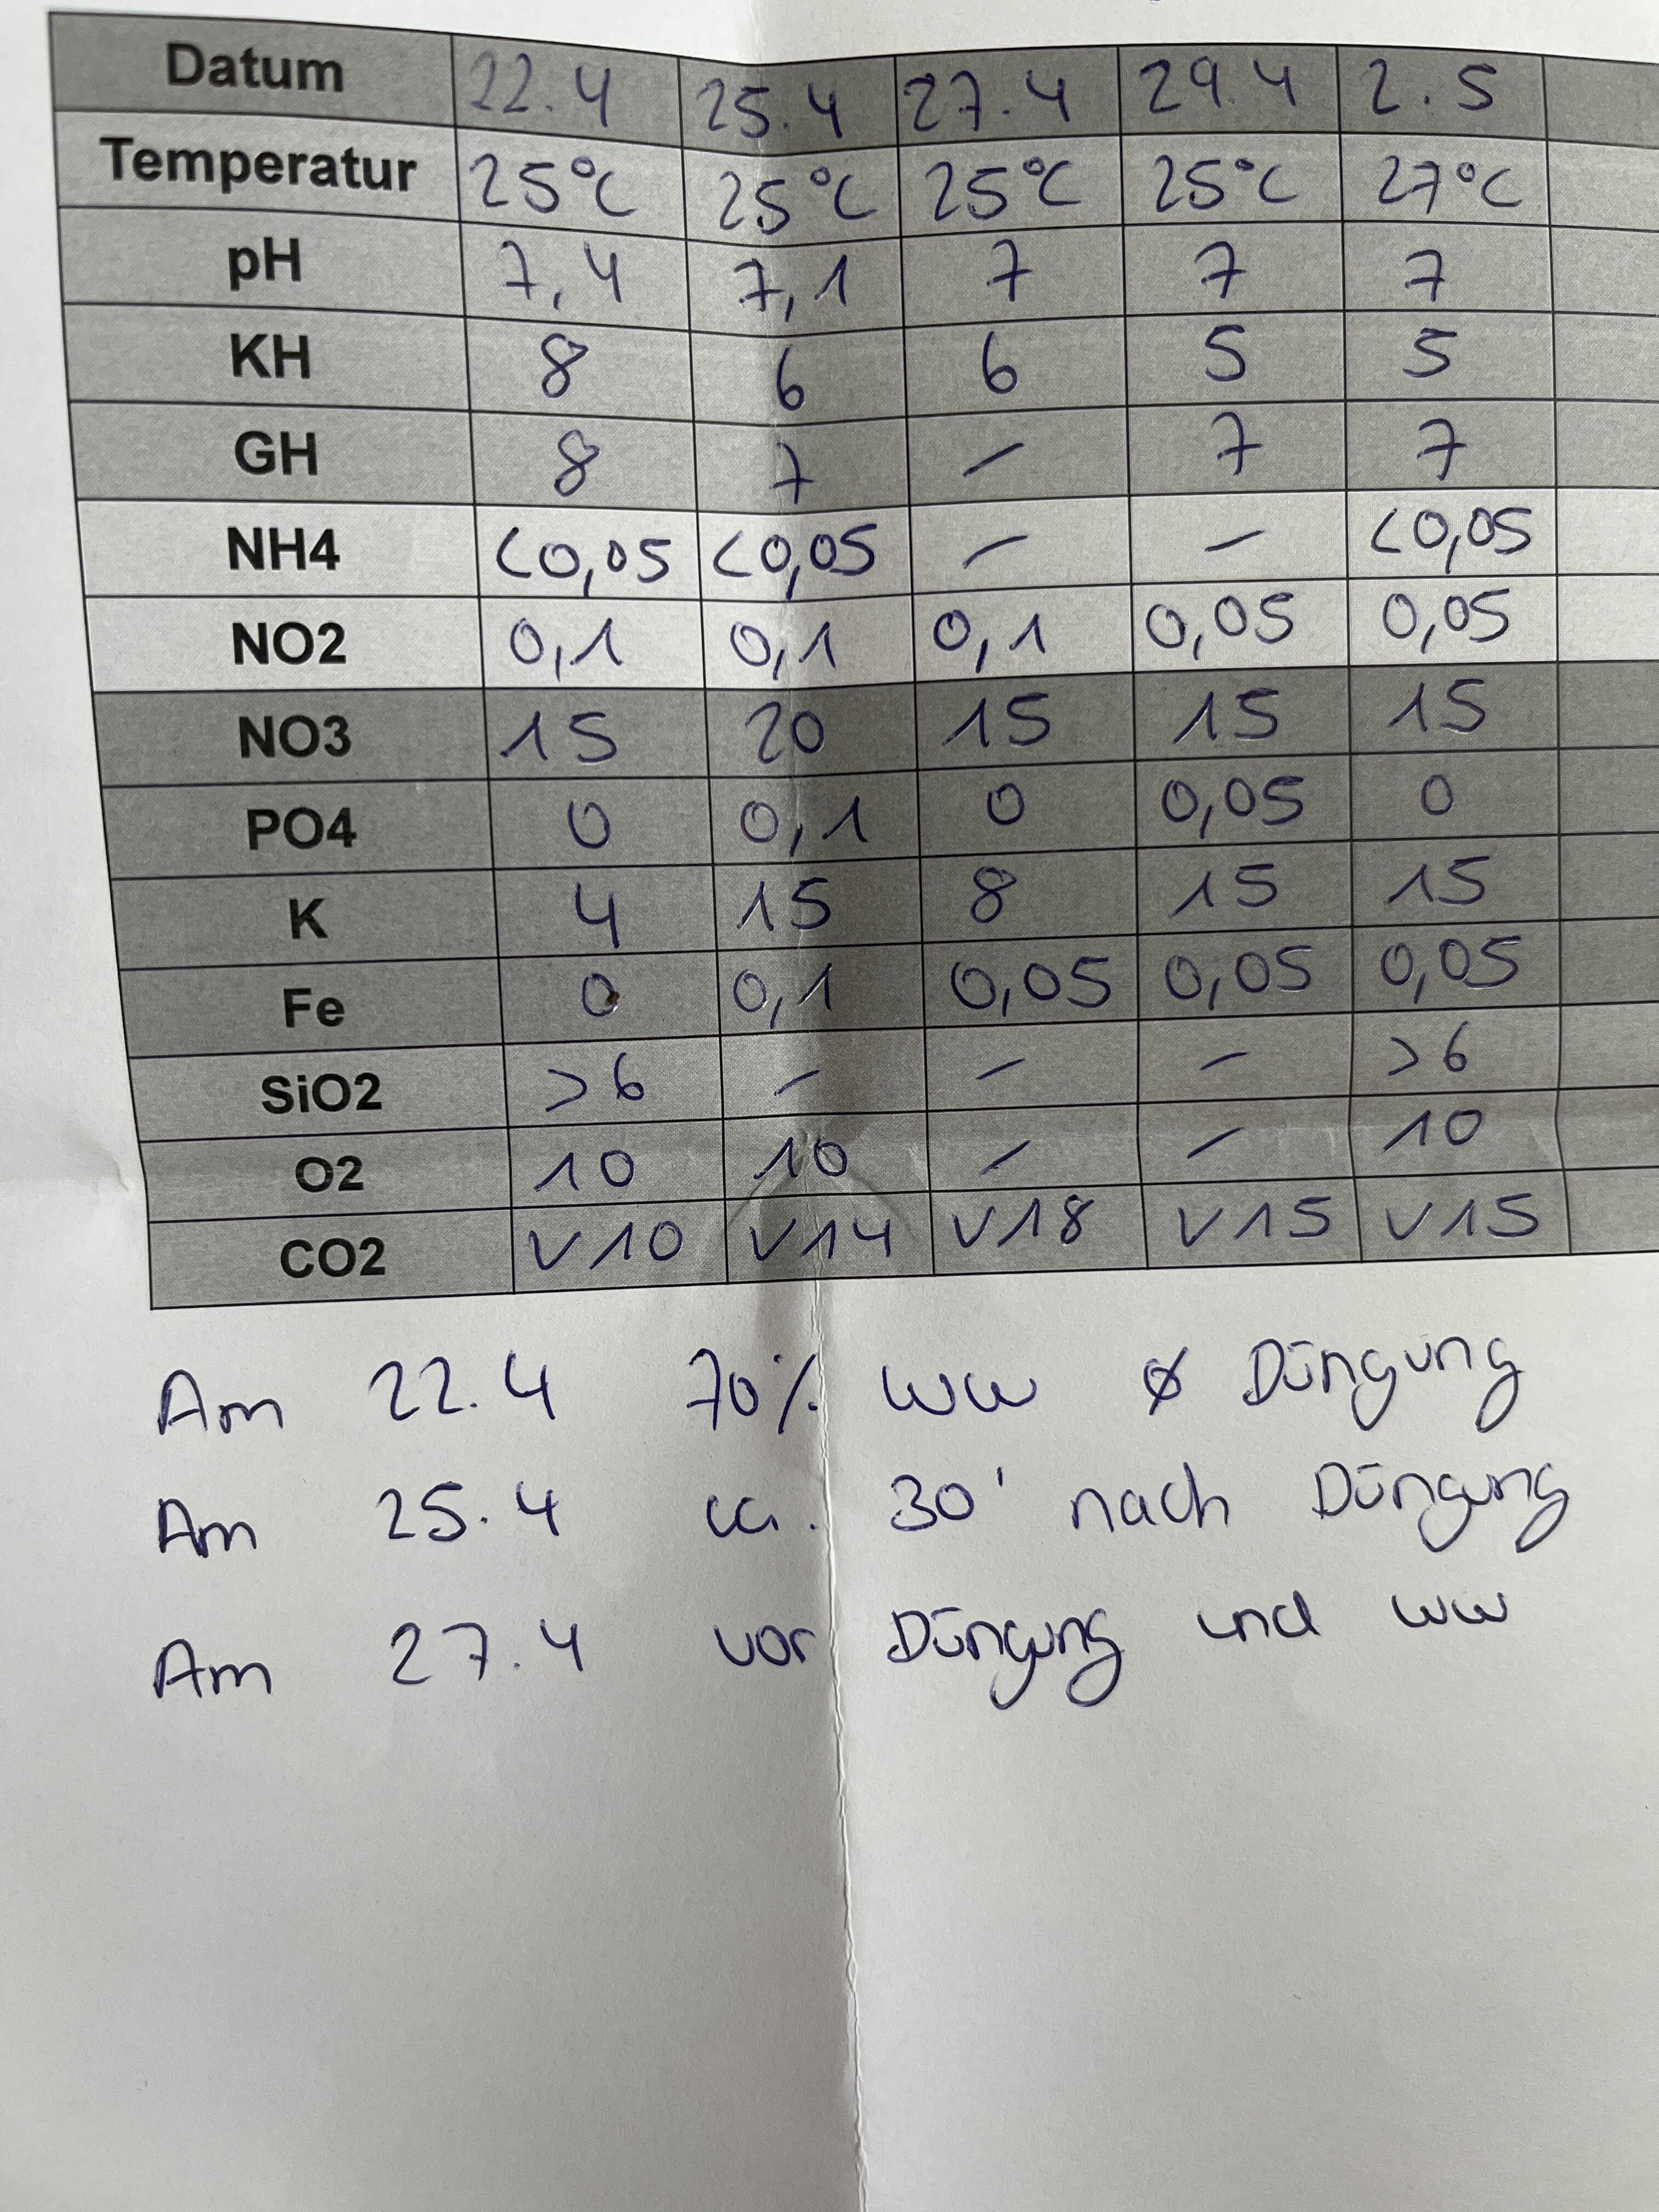 Datum 22.4 25.4 27.4 29.4 2.5
Temperatur 25°C 25°C 25°C 25°C 27°C
pH 7,4 7,1 7 7 7
KH 8 6 6 5 5
GH 8 7 - 7 7
NH4 <0,05 <0,05 - - <0,05
NO2 0,1 0,1 0,1 0,05 0,05
NO3 15 20 15 15 15
PO4 0 0,1 0 0,05 0
K 4 15 8 15 15
Fe 0 0,1 0,05 0,05 0,05
SiO2 >6 - - - >6
O2 10 10 - - 10
CO2 √10 √14 √18 √15 √15
Am 22.4 70% WW ø Düngung
Am 25.4 ca. 30' nach Düngung
Am 27.4 vor Düngung und WW